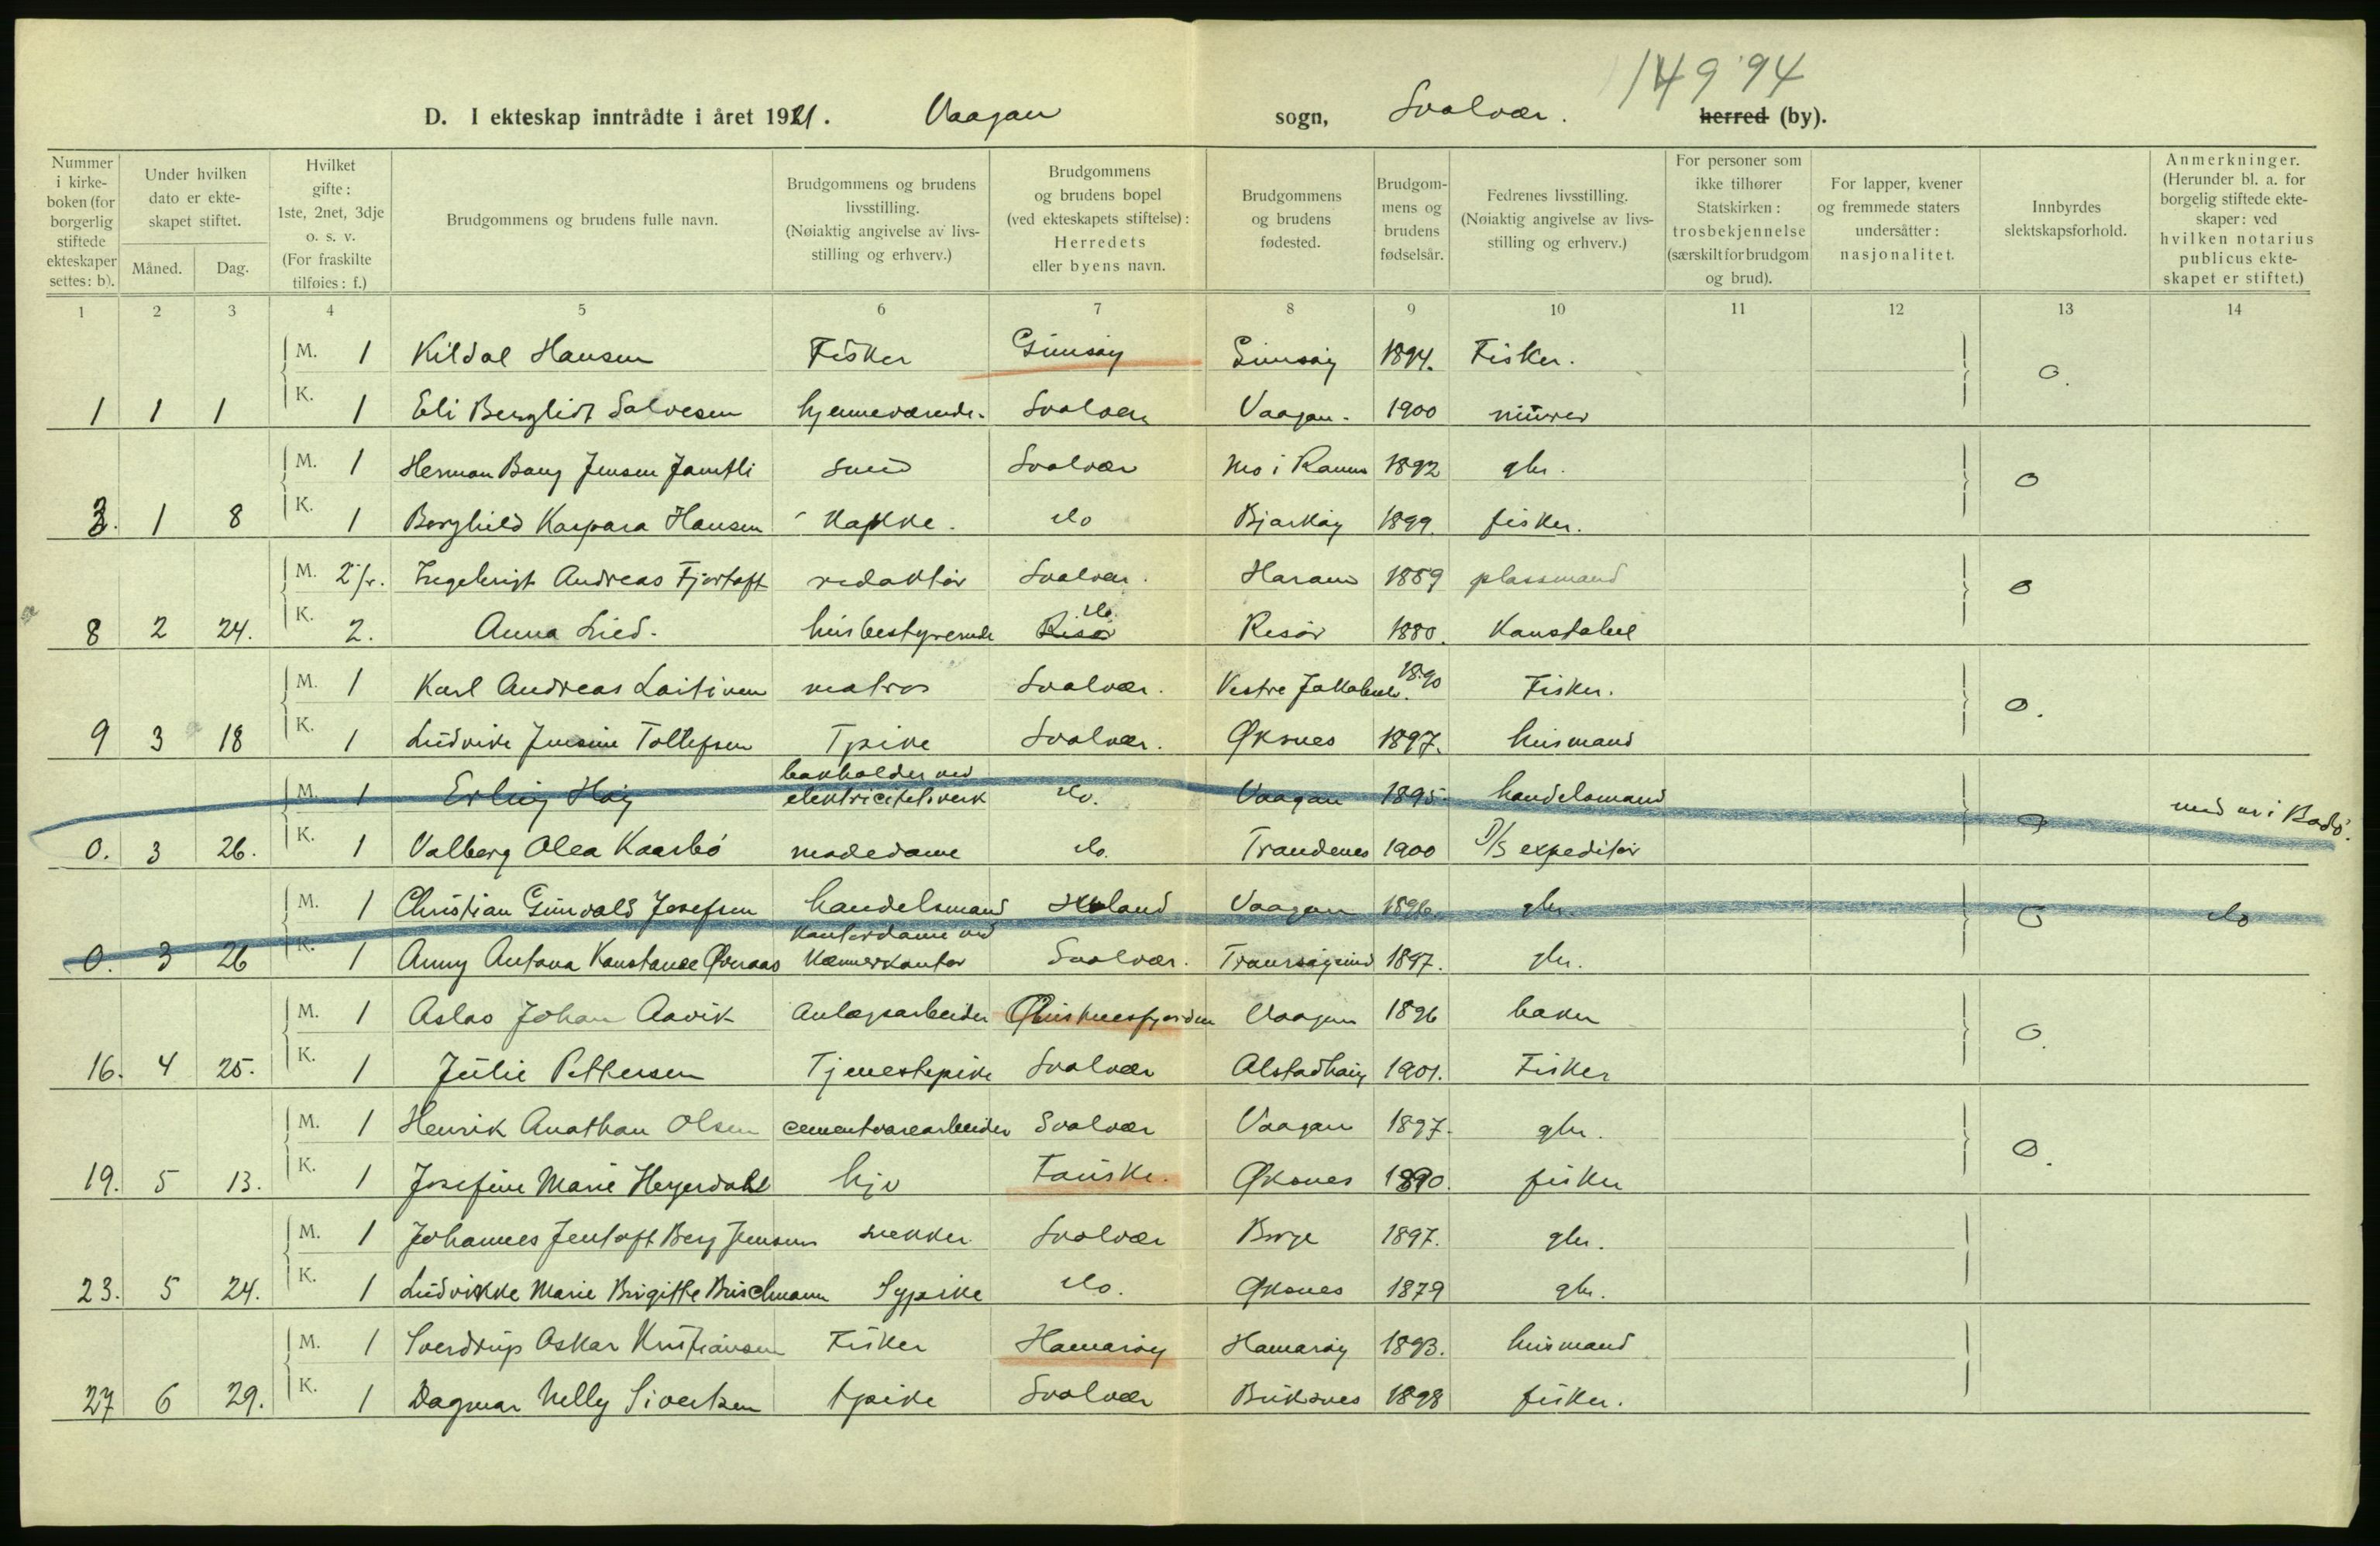 149'94
D. I ekteskap inntrådte i året 1921. Vaagan sogn, Svolvær. herred (by).
Nummer i kirkeboken (for borgerlig stiftede ekteskaper settes: b).
Under hvilken dato er ekteskapet stiftet.
Måned. Dag.
Hvilket gifte: 1ste, 2net, 3dje o. s. v. (For fraskilte tilføies: f.)
Brudgommens og brudens fulle navn.
Brudgommens og brudens livsstilling. (Nøiaktig angivelse av livsstilling og erhverv.)
Brudgommens og brudens bopel (ved ekteskapets stiftelse): Herredets eller byens navn.
Brudgommens og brudens fødested.
Brudgommens og brudens fødselsår.
Fedrenes livsstilling. (Nøiaktig angivelse av livsstilling og erhverv.)
For personer som ikke tilhører Statskirken: trosbekjennelse (særskilt for brudgom og brud).
For lapper, kvener og fremmede staters undersåtter: nasjonalitet.
Innbyrdes slektskapsforhold.
Anmerkninger. (Herunder bl. a. for borgelig stiftede ekteskaper: ved hvilken notarius publicus ekteskapet er stiftet.)
1 2 3 4 5 6 7 8 9 10 11 12 13 14
M. 1 Kildal Hansen Fisker Gimsøy Gimsøy 1894. Fisker. 0.
1 1 1 K. 1 Eli Bergliot Salvesen hjemmeværende. Svolvær Vaagan. 1900 murer
M. 1 Herman Bang Jensen Jamtli smed Svolvær Mo i Ranen 1892 gbr. 0
3. 1 8 K. 1 Borghild Kaspara Hansen do Bjarkøy 1899. fisker.
M. 2 fr. Ingebrigt Andreas Fjørtoft redaktør Svolvær. Haram 1889 plassmand 0
8 2 24. K. 2. Anna Lied. husbestyrerinde Risør do. Risør 1880. Konstabel
M. 1 Karl Andreas Laitinen matros Svolvær. Vestre Jakobselv. 1890 Fisker. 0.
9 3 18 K. 1 Ludvikke Jensine Tollefsen Tpike Svolvær. Øksnes 1897. husmand
M. 1 Erling Høy bokholder ved elektricitetsverk do. Vaagan 1895 handelsmand 0 med nr i Bodø.
0. 3 26. K. 1 Valberg Olea Kaarbø motedame do. Trondenes 1900 D/S expeditør
M. 1 Christian Gunvald Josefsen handelsmand Vaagan 1896. gbr. 0 do
0. 3 26 K. 1 Anny Antona Konstanse Øveraas kontordame ved kæmnerkontor Svolvær. Tromsøysund 1897. gbr.
M. 1 Aslao Johan Aavik Anlægsarbeider Vaagan 1896 baker 0
16. 4 25. K. 1 Julie Pettersen Tjenestepike Svolvær Alstadhaug 1901. Fisker
M. 1 Henrik Anathan Olsen cementvarearbeider Svolvær Vaagan 1897. gbr. 0.
19. 5 13. K. 1 Josefine Marie Heyerdahl hjv Fauske. Øksnes 1890. fisker
M. 1 Johannes Jentoft Berg Jensen snekker Svolvær Borge 1897. gbr.
23. 5 24. K. 1 Ludvikke Marie Birgitte Buschmann Sypike do. Øksnes 1879 gbr.
M. 1 Sverdrup Oskar Kristiansen Fisker Hamarøy Hamarøy 1893. husmand
27 6 29. K. 1 Dagmar Nelly Sivertsen tpike Svolvær Buksnes 1898 fisker.